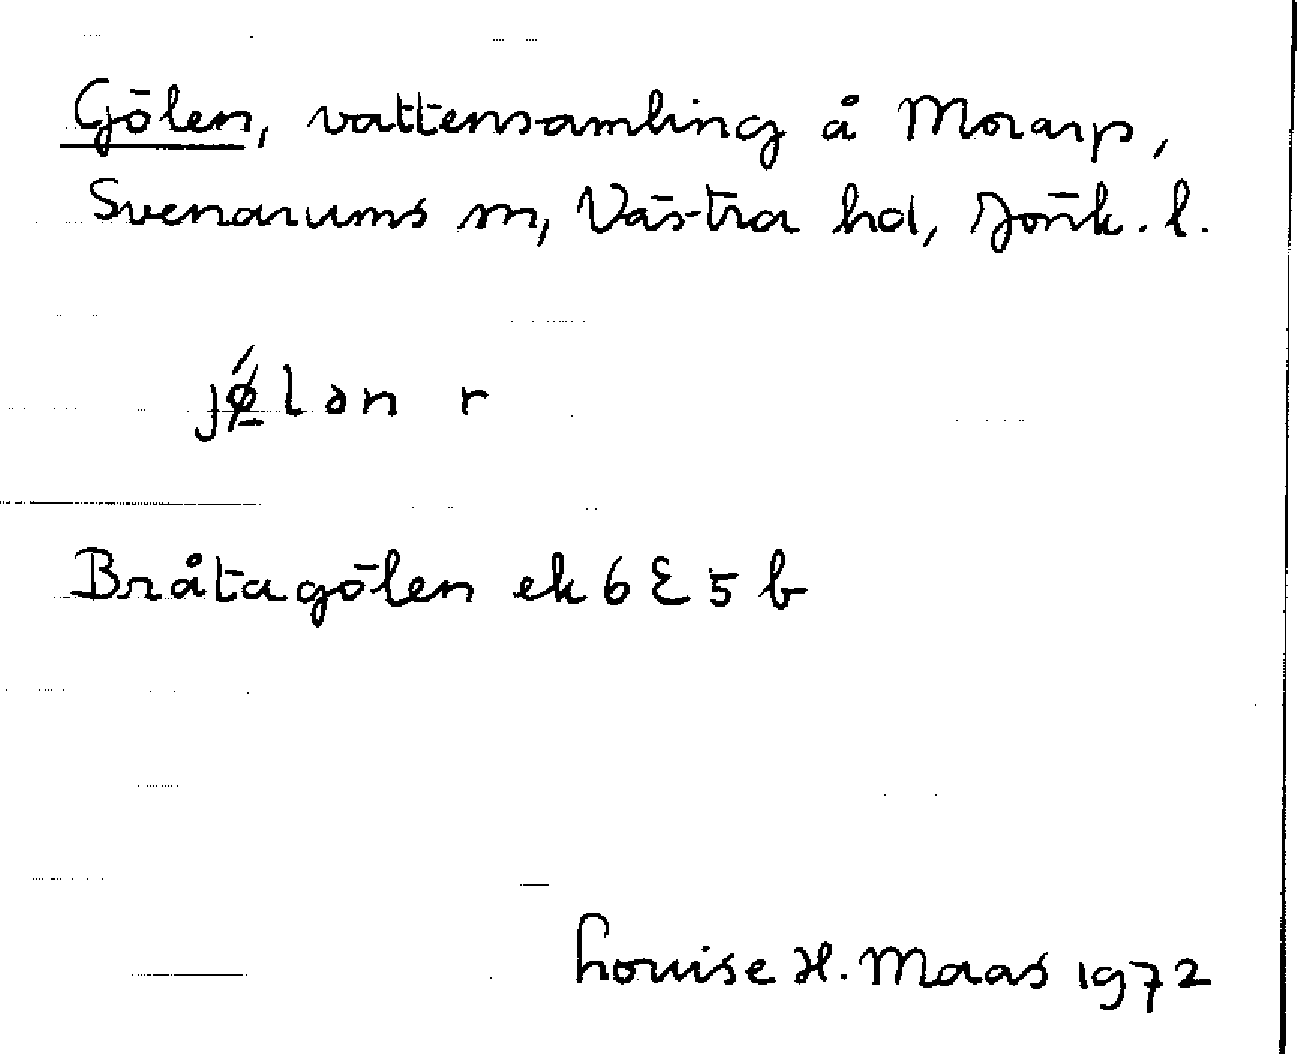 Gölen, vattensamling å Morarp,
Svenarums sn, Västra hd, Jönk. l.
jǿ̲lən r
Bråtagölen ek 6 E 5 b
Louise H. Maas 1972